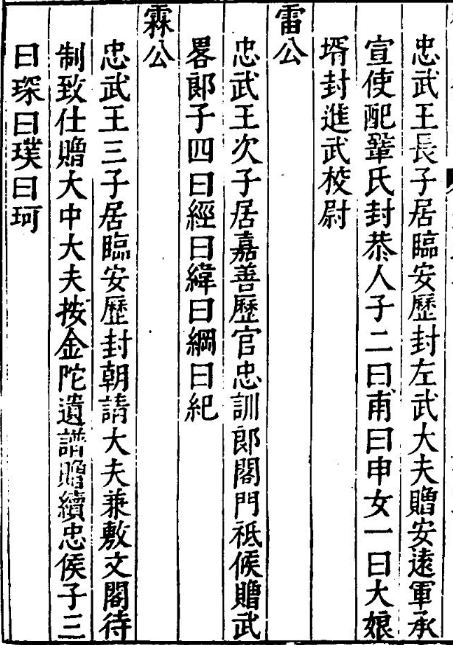 忠武王長子居臨安歷封左武大夫贈安遠軍承
宣使配鞏氏封恭人子二曰甫曰申女一曰大娘
壻封進武校尉
雷公
忠武王次子居嘉善歷官忠訓郎閤門祇候贈武
畧郎子四曰經曰緯曰綱曰紀
霖公
忠武王三子居臨安歷封朝請大夫兼敷文閣待
制致仕贈大中大夫按金陀遺譜贈續忠侯子三
曰琛曰璞曰珂